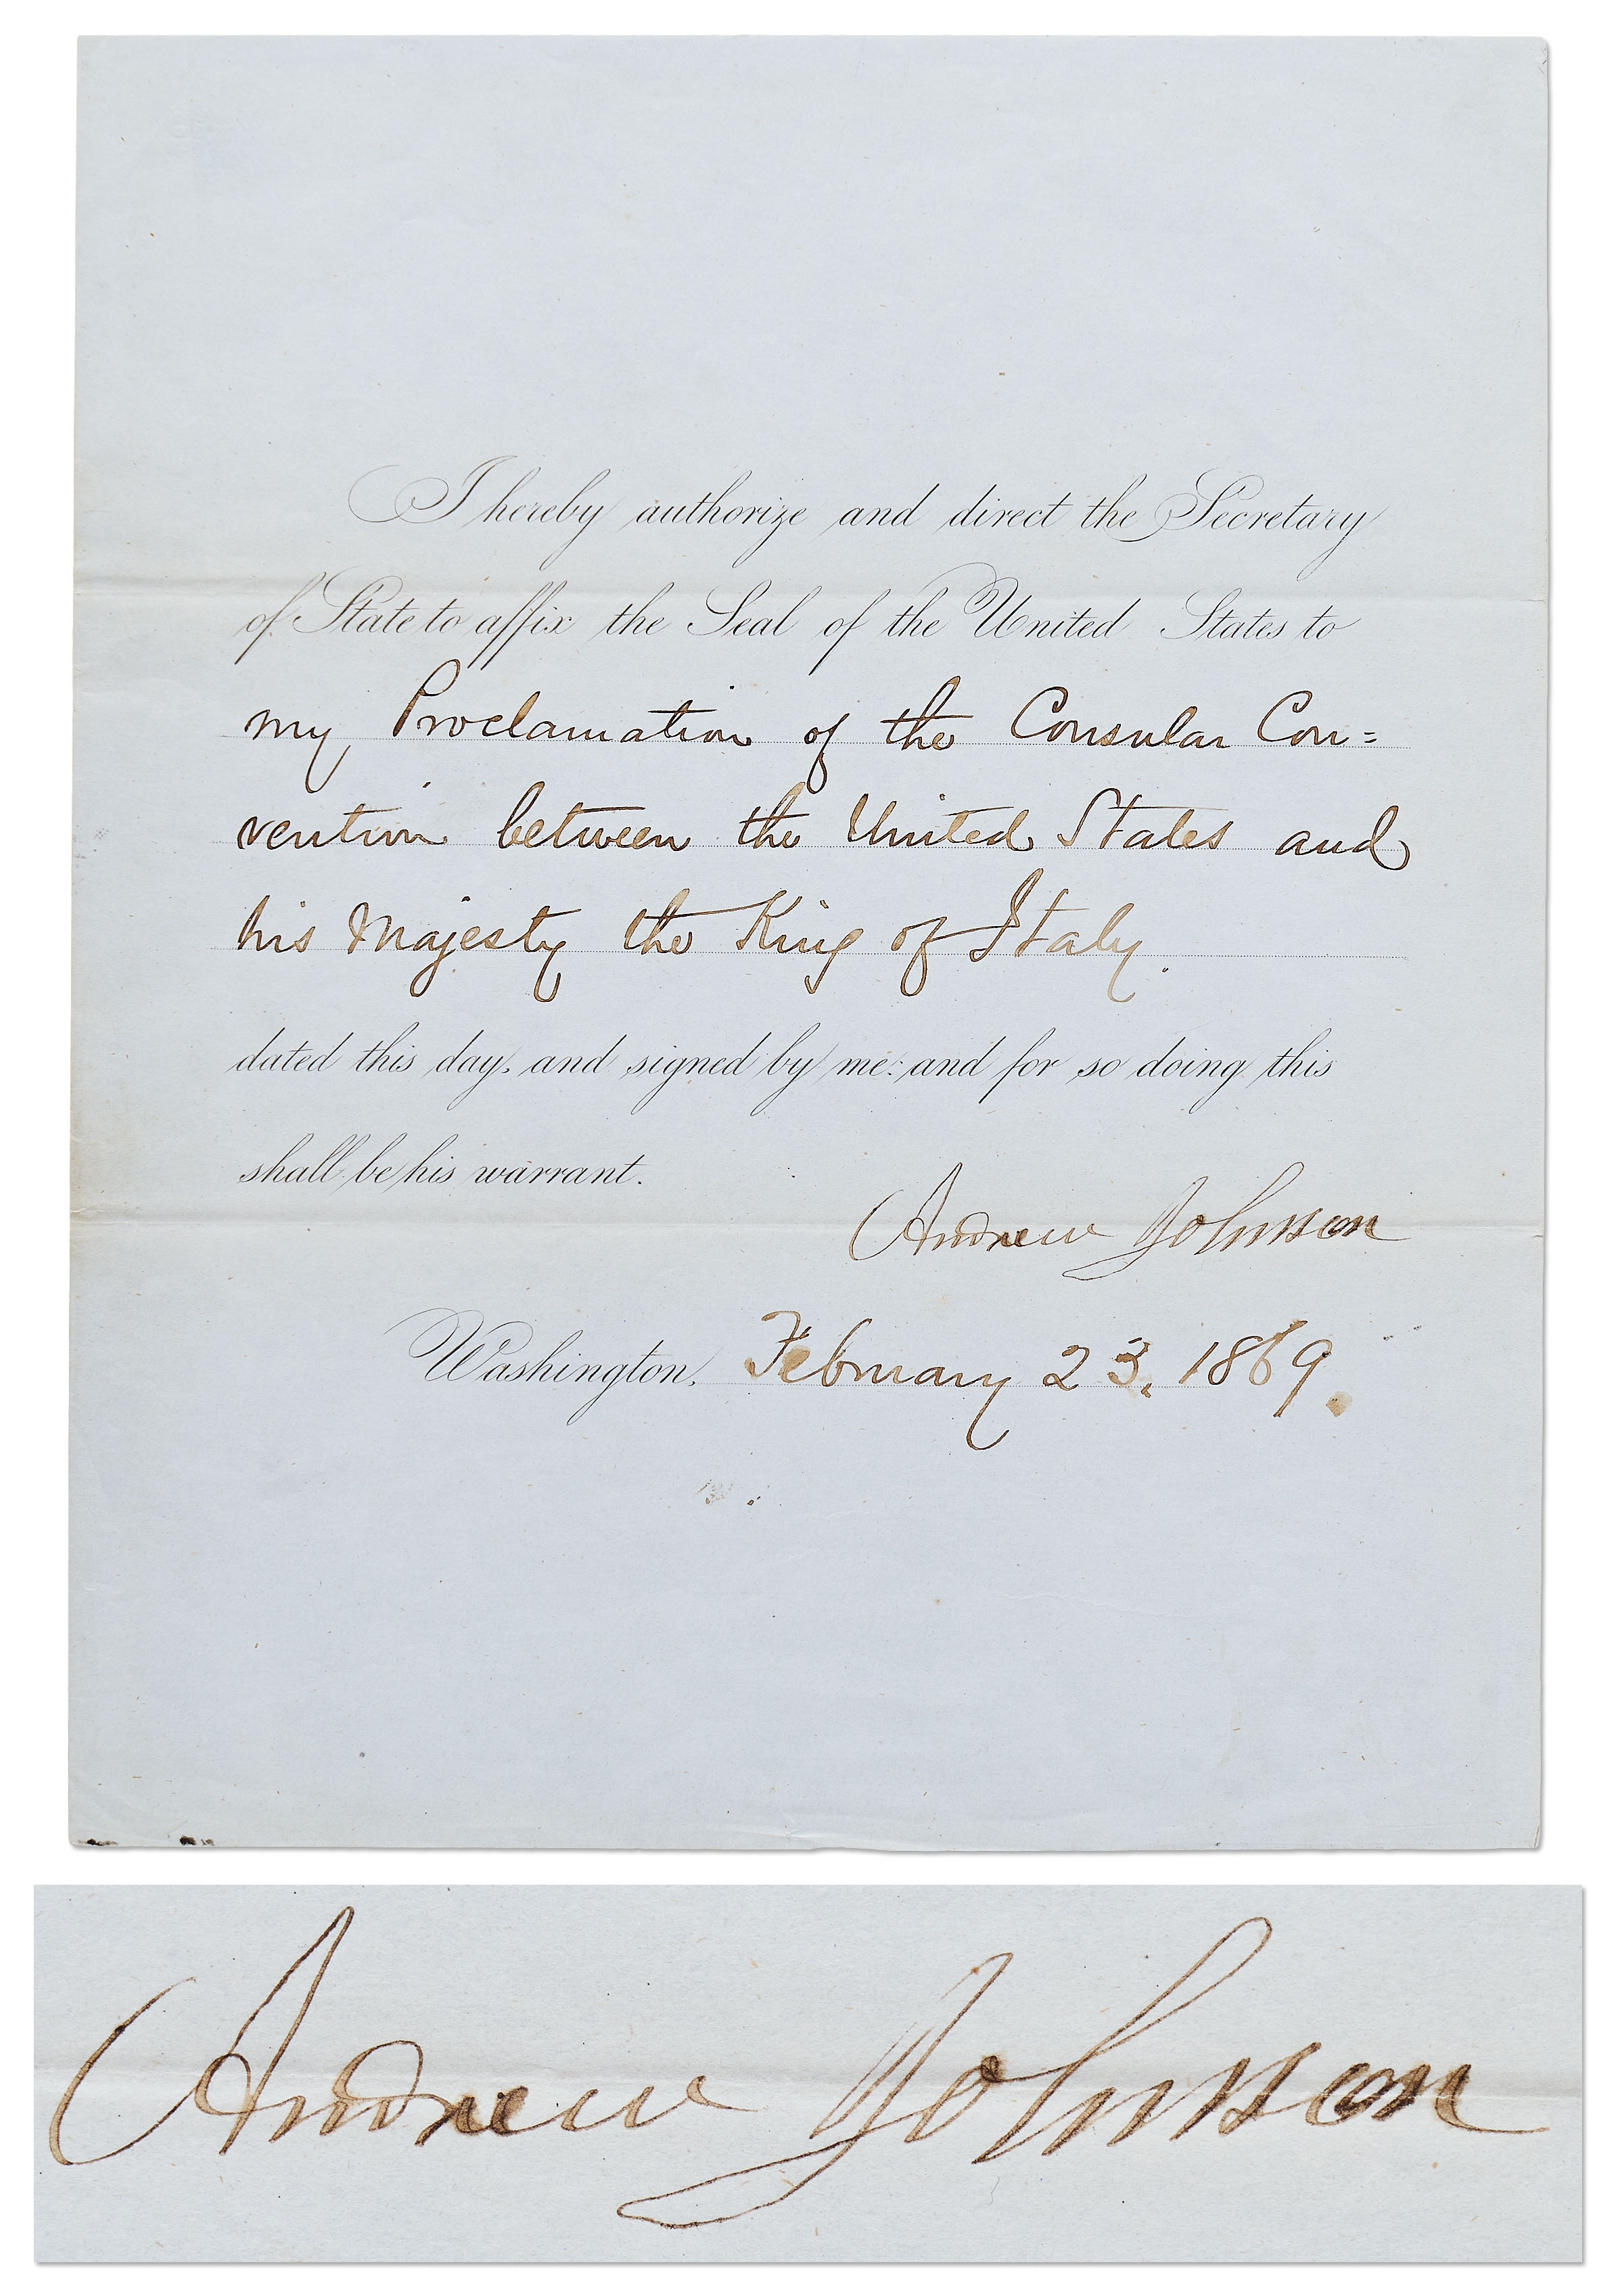 I hereby authorize and direct the Secretary
of State to affix the Seal of the United States to
my Proclamation of the Consular Con=
vention between the United States and
his Majesty the King of Italy.
dated this day, and signed by me: and for so doing this
shall be his warrant.
Andrew Johnson
Washington, February 23, 1869.
Andrew Johnson